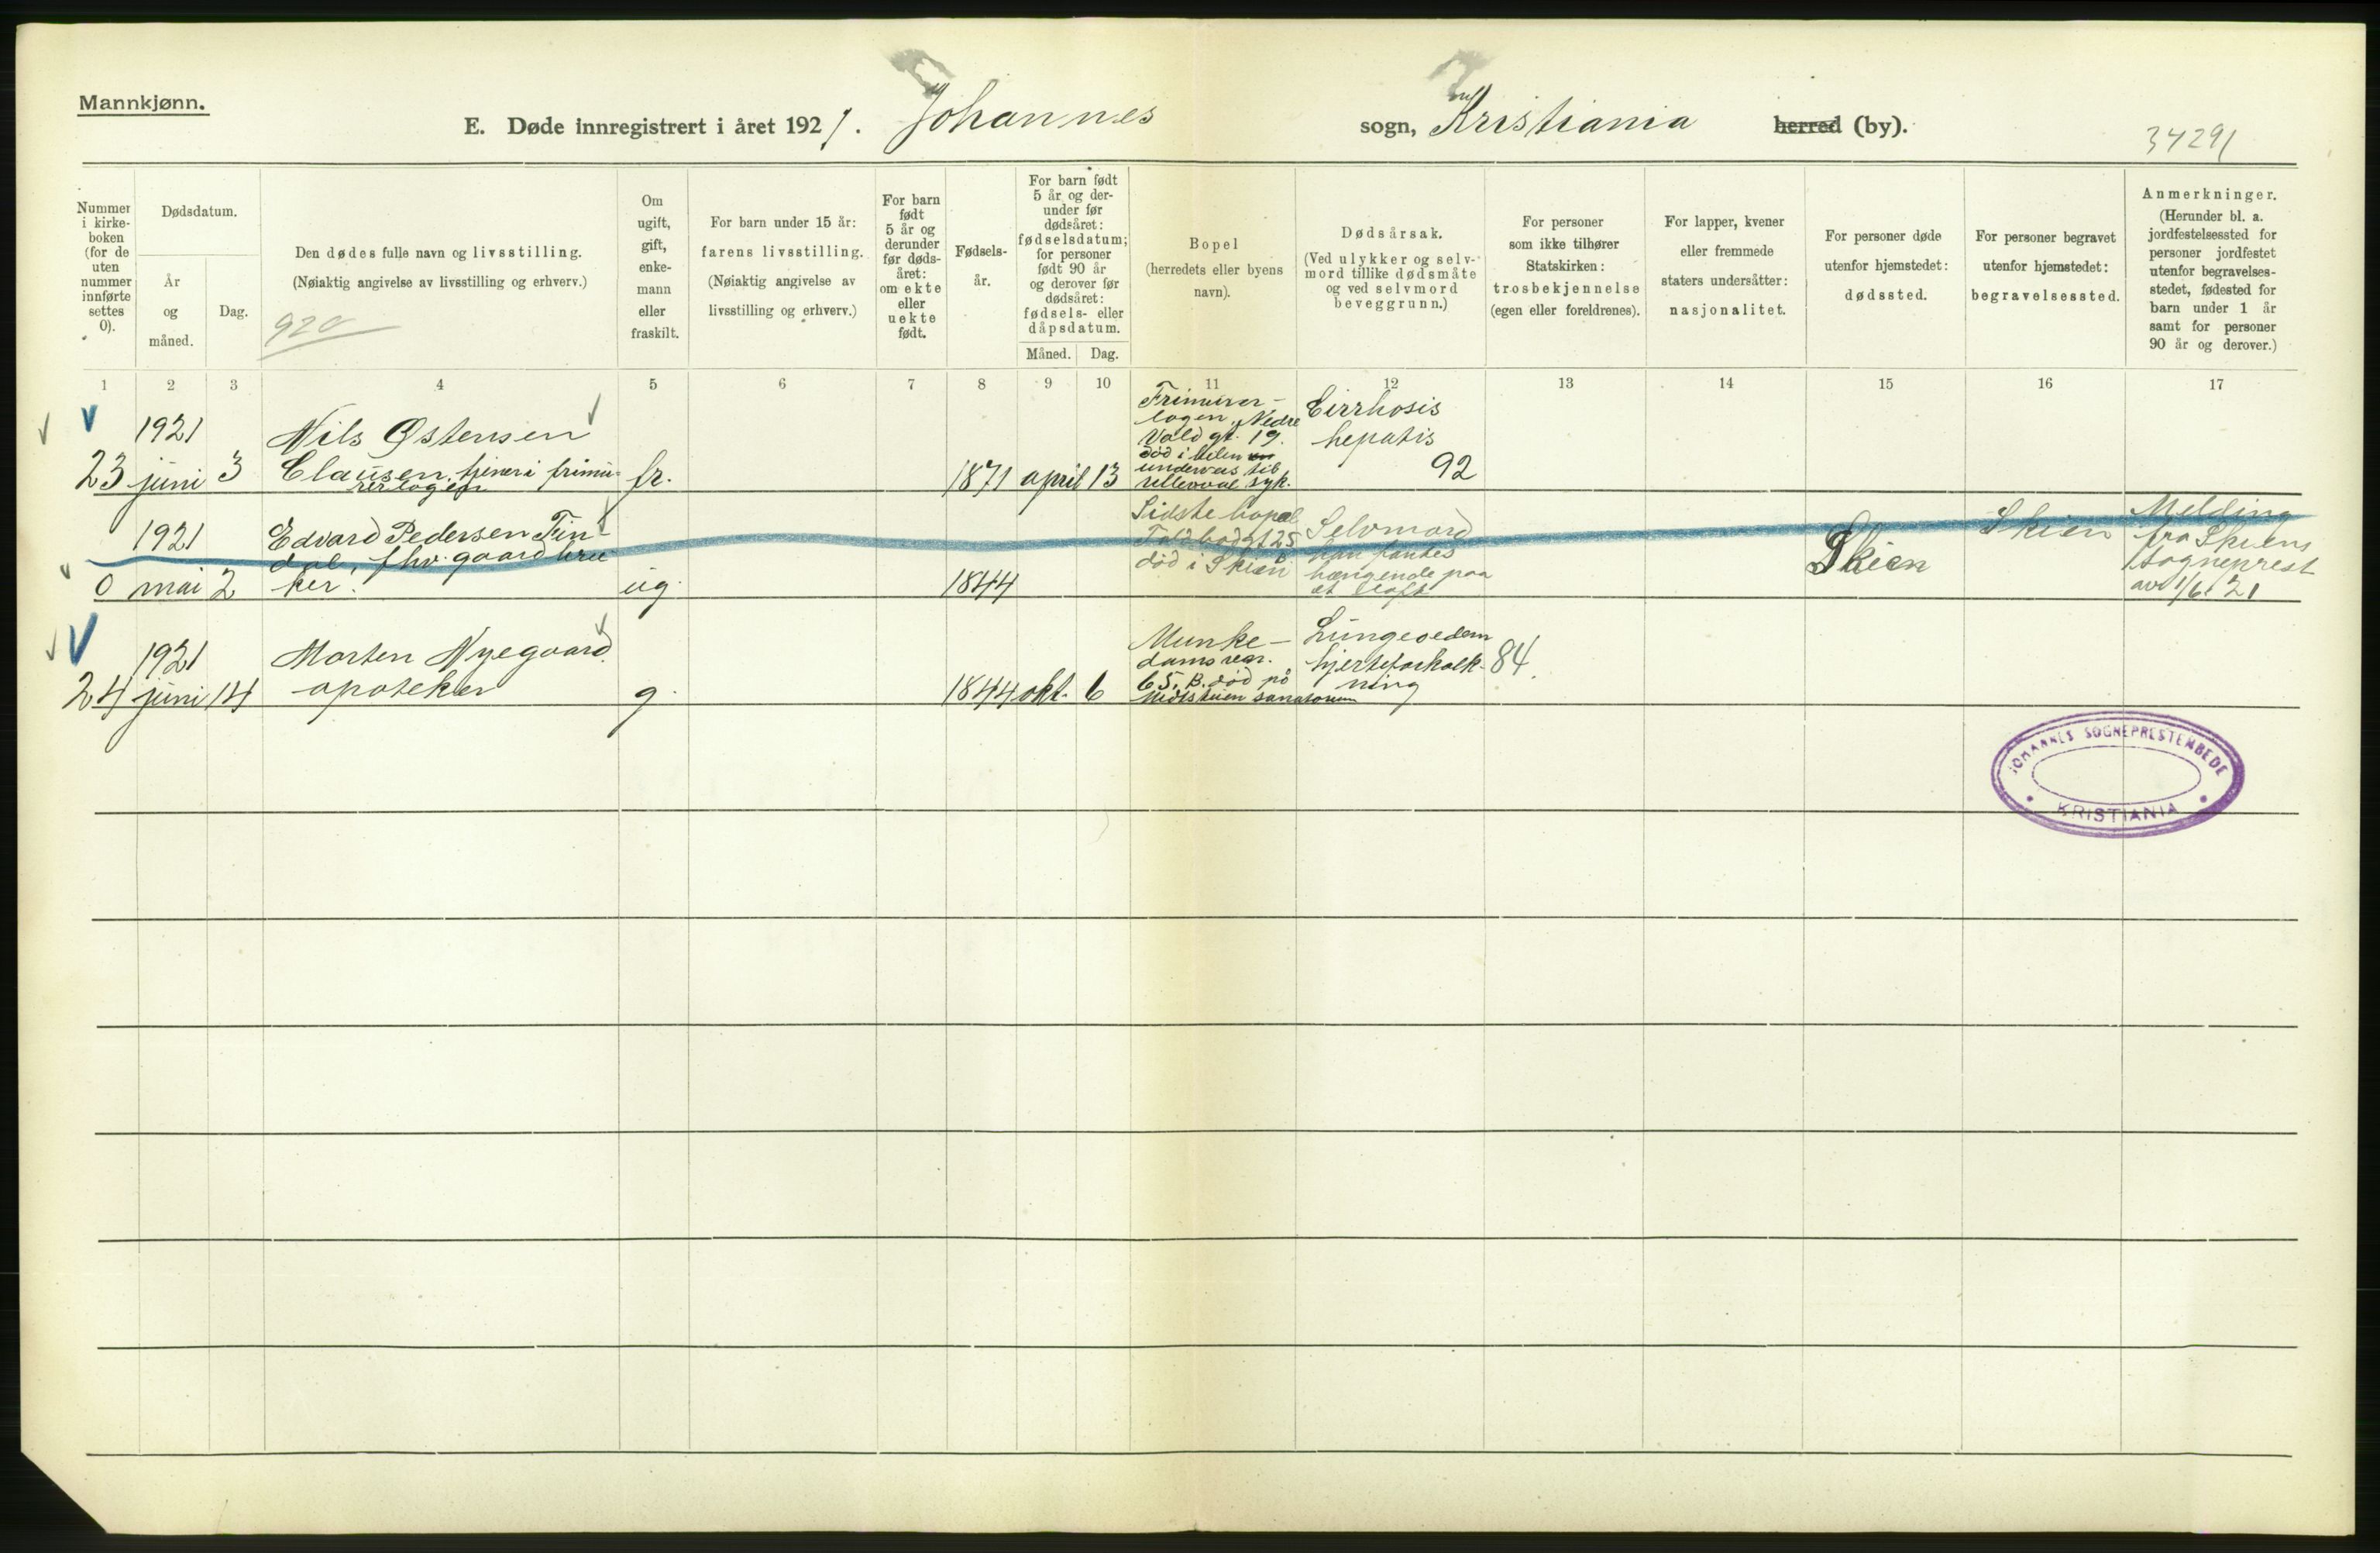 Mannkjønn.
E. Døde innregistrert i året 1921. Johannes sogn, Kristiania herred (by).
34291
Nummer i kirke-boken (for de uten nummer innførte settes 0).
Dødsdatum.
År og måned.
Dag.
Den dødes fulle navn og livsstilling.
(Nøiaktig angivelse av livsstilling og erhverv.)
920
Om ugift, gift, enke-mann eller fraskilt.
For barn under 15 år:
farens livsstilling.
(Nøiaktig angivelse av livsstilling og erhverv.)
For barn født 5 år og derunder før døds-året: om ekte eller uekte født.
Fødsels-år.
For barn født 5 år og der-under før dødsåret: fødselsdatum; for personer født 90 år og derover før dødsåret: fødsels- eller dåpsdatum.
Måned. Dag.
Bopel
(herredets eller byens navn).
Dødsårsak.
(Ved ulykker og selv-mord tillike dødsmåte og ved selvmord beveggrunn.)
For personer som ikke tilhører Statskirken: trosbekjennelse (egen eller foreldrenes).
For lapper, kvener eller fremmede staters undersåtter: nasjonalitet.
For personer døde utenfor hjemstedet: dødssted.
For personer begravet utenfor hjemstedet: begravelsessted.
Anmerkninger.
(Herunder bl. a. jordfestelsessted for personer jordfestet utenfor begravelses-stedet, fødested for barn under 1 år samt for personer 90 år og derover.)
1 2 3 4 5 6 7 8 9 10 11 12 13 14 15 16 17
23 1921 juni 3 Nils Østensen Clausen, tjener i frimu-rerlogen fr. 1871 april 13 Frimurer-logen, Nedre Vold gt. 19. død i bilen underveis til Ullevaal syk. Cirrhosis hepatis 92
0 1921 mai 2 Edvard Pedersen Tin-dal, fhv. gaardbru-ker. ug. 1844 Sidste bopæl Toldbodgt 25 død i Skien Selvmord han fantes hængende paa et loft Skien Skien Melding fra Skiens sogneprest av 1/6 21
24 1921 juni 14 Morten Nyegaard. apoteker g. 1844 okt. 6 Munke-damsvei. 65. B. død på sanatorium Lungeoedem hjerteforkalk-ning 84.
JOHANNES SOGNEPRESTEMBEDE
KRISTIANIA